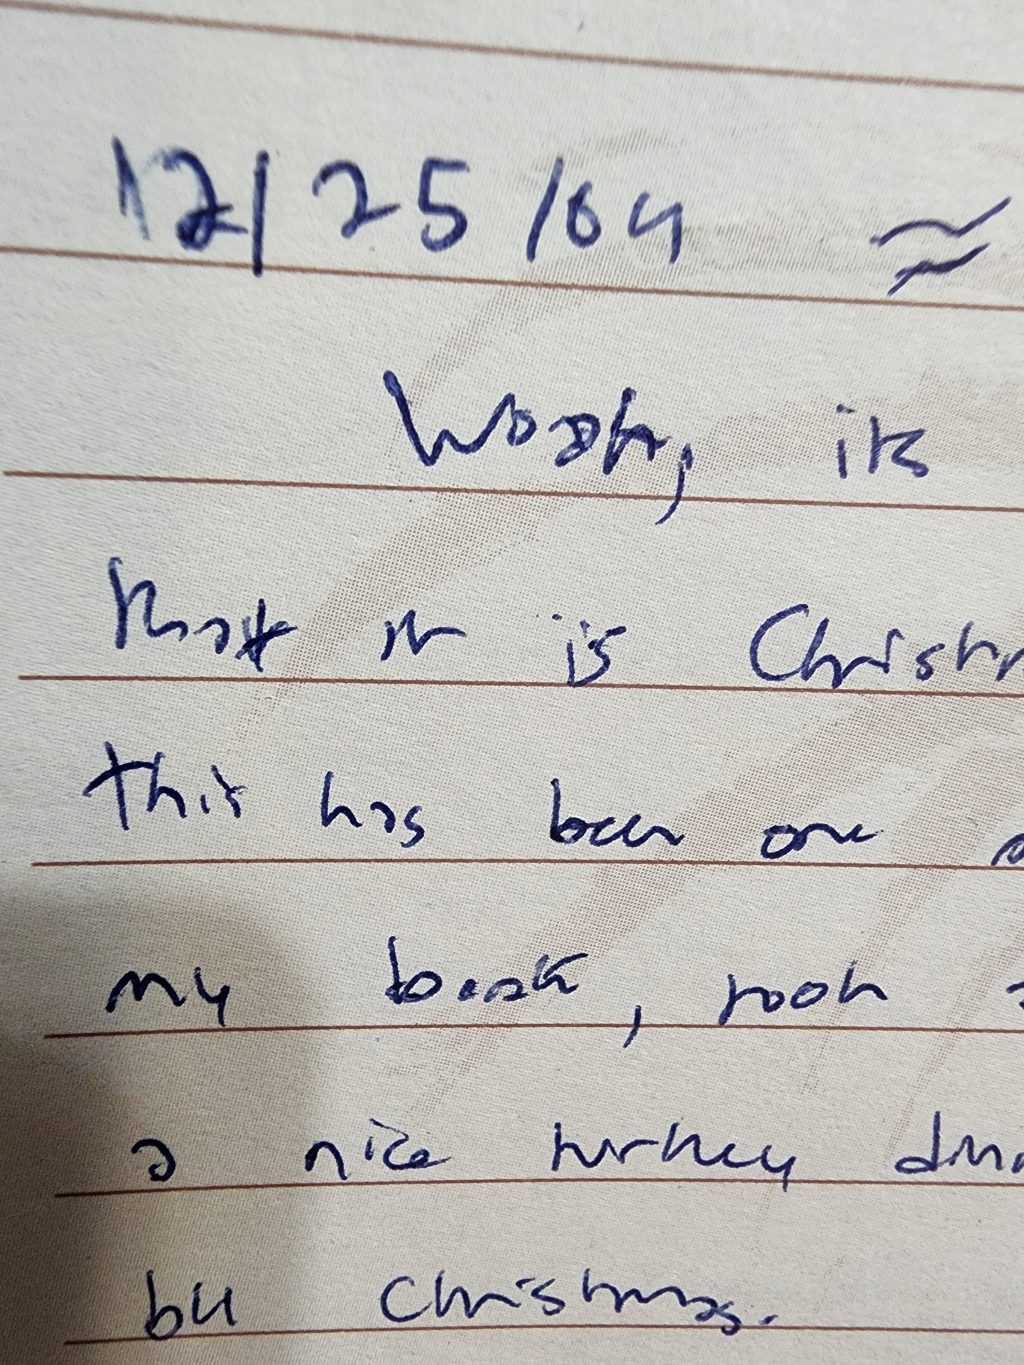 12/25/04 ≈
Woah, its
that it is Christm
this has been one
my book, took
a nice turkey din
bu Christmas.